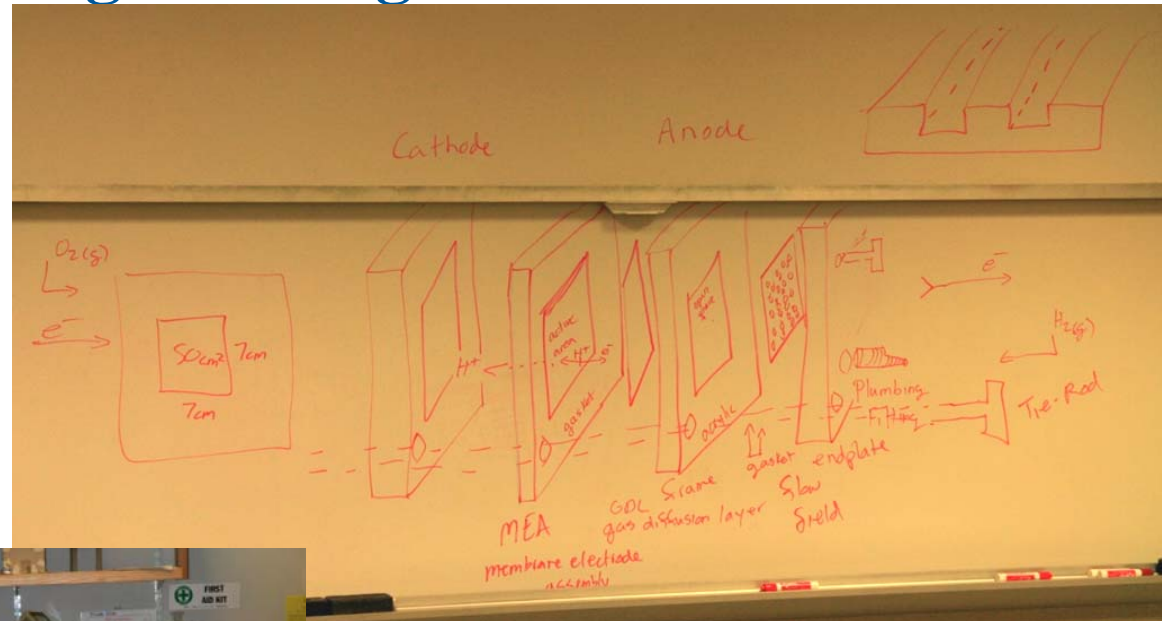 Cathode
Anode
O2(g)
e-
50cm² 7cm
7cm
H+
active
area
H+
gasket
open
acrylic
e-
H2(g)
Plumbing
Fitting
Tie-Rod
MEA
membrane electrode
assembly
GDL frame
gas diffusion layer
gasket endplate
flow
field
FIRST
AID KIT